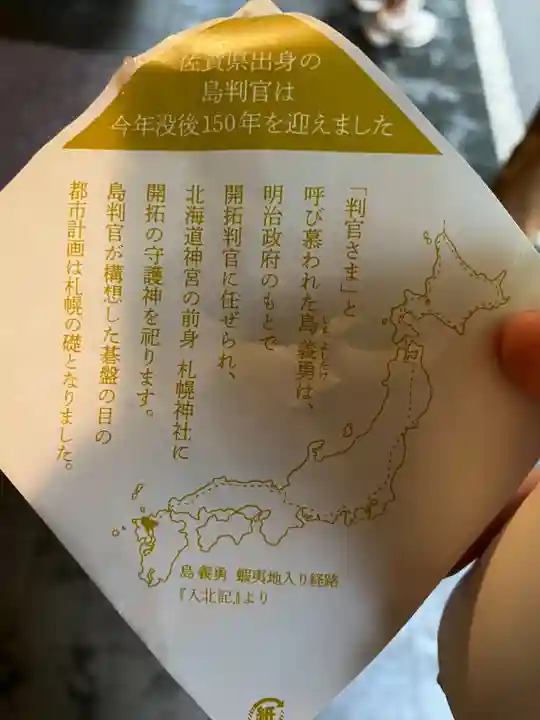 佐賀県出身の
島判官は
今年没後150年を迎えました
「判官さま」と
呼び慕われた島 義勇は、
しま よしたけ
明治政府のもとで
開拓判官に任ぜられ、
北海道神宮の前身 札幌神社に
開拓の守護神を祀ります。
島判官が構想した碁盤の目の
都市計画は札幌の礎となりました。
島 義勇 蝦夷地入り経路
『入北記』より
紙